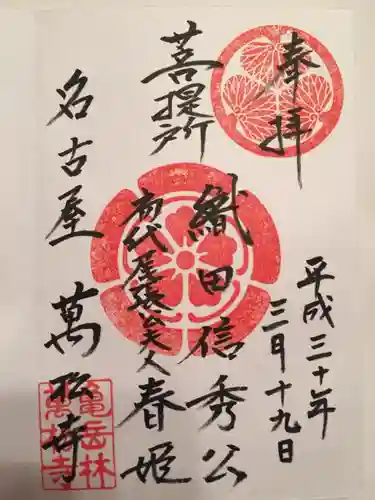 奉拝
平成三十年
三月十九日
菩提所
織田信秀公
初代尾張公夫人
春姫
名古屋
萬松寺
亀岳林
萬松寺